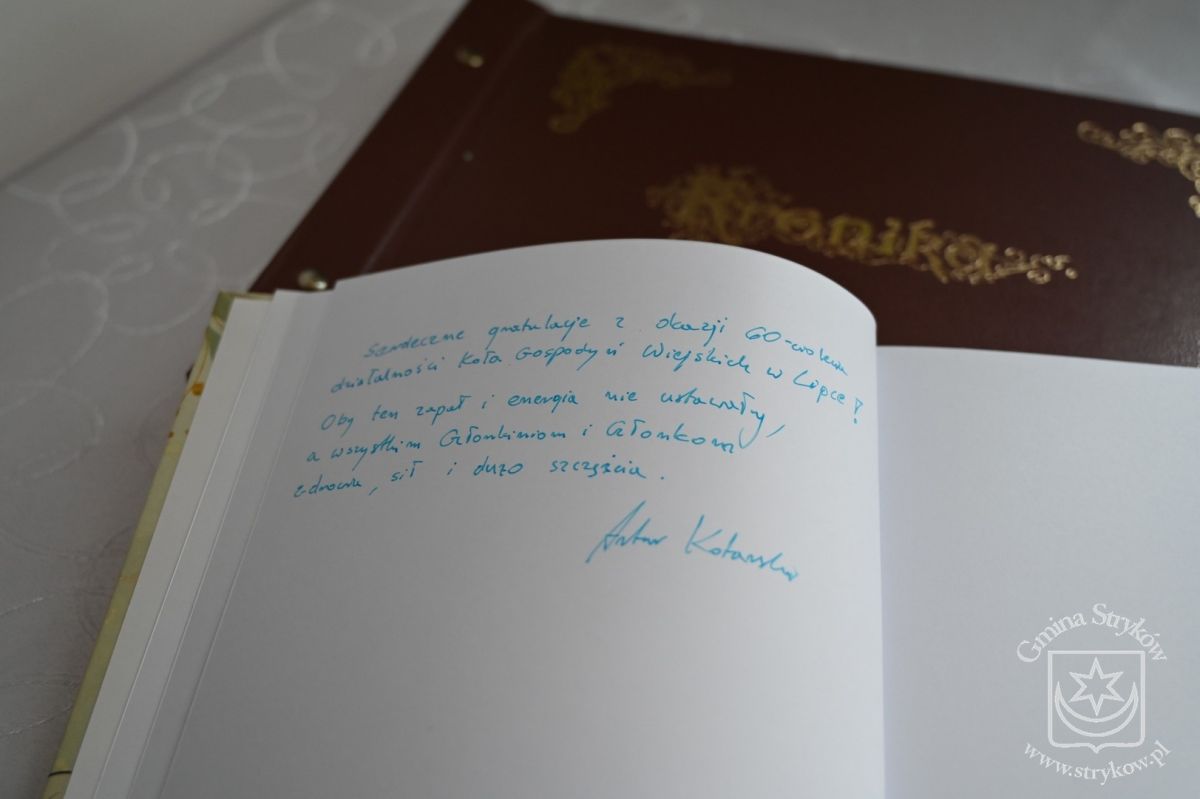 Kronika
Serdeczne gratulacje z okazji 60-cio lecia
działalności Koła Gospodyń Wiejskich w Lipce!
Oby ten zapał i energia nie ustawały,
a wszystkim Członkiniom i Członkom
zdrowia, sił i dużo szczęścia.
Artur Kotarski
Gmina Stryków
www.strykow.pl